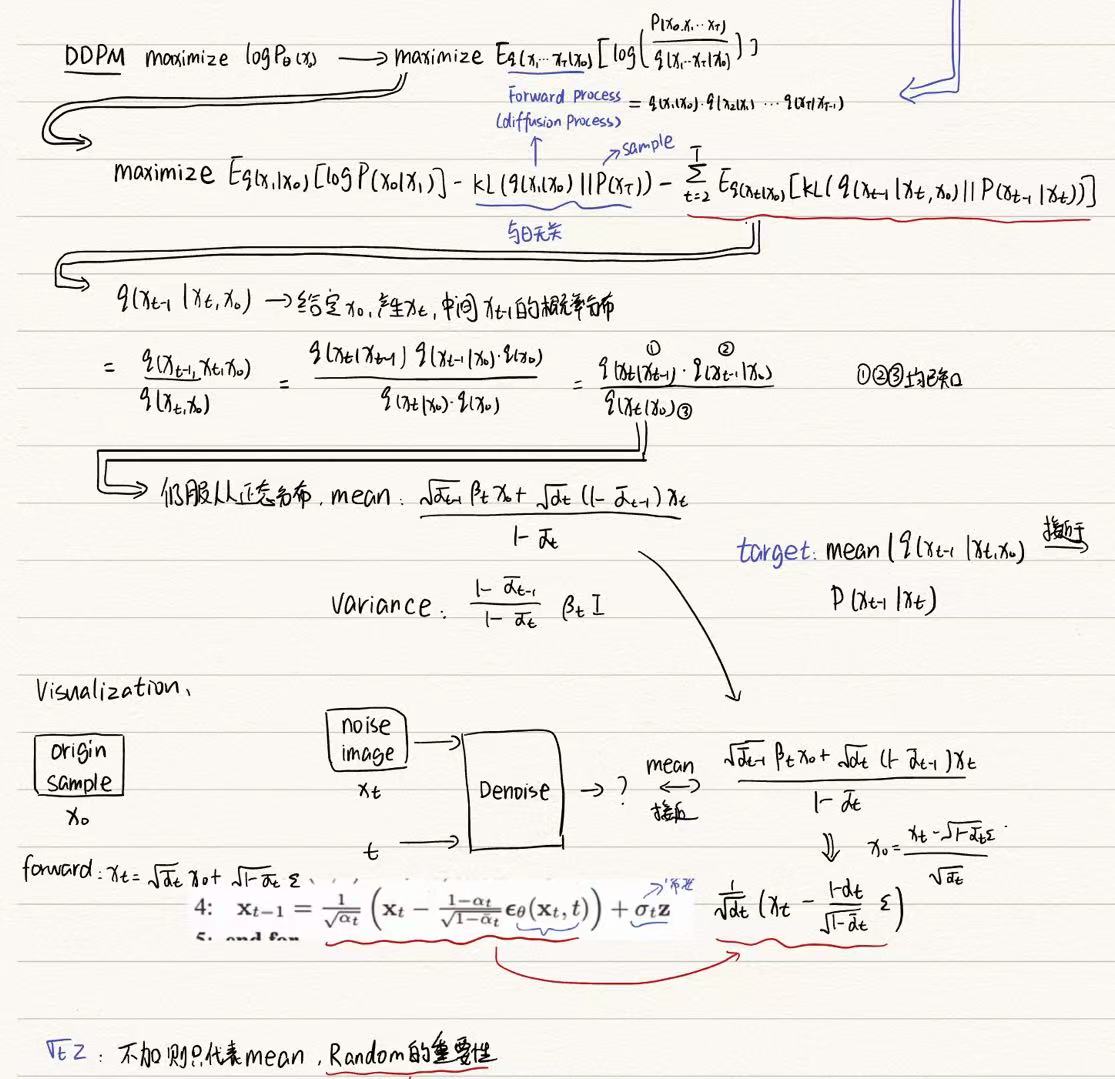 DDPM maximize log Pθ(x₀) → maximize E_q(x₁…x_T|x₀)[log(P(x₀,x₁…x_T)/q(x₁…x_T|x₀))]
Forward Process = q(x₁|x₀)·q(x₂|x₁) … q(x_T|x_T-1)
(diffusion Process)
sample
maximize E_q(x₁|x₀)[log P(x₀|x₁)] - KL(q(x₁|x₀)||P(x_T)) - Σ_{t=2}^{T} E_q(x_t|x₀)[KL(q(x_t-1|x_t,x₀)||P(x_t-1|x_t))]
与θ无关
q(x_t-1|x_t,x₀) → 给定x₀,产生x_t,中间x_t-1的概率分布
= q(x_t-1,x_t,x₀)/q(x_t,x₀) = q(x_t|x_t-1) q(x_t-1|x₀)·q(x₀)/q(x_t|x₀)·q(x₀) = ① q(x_t|x_t-1) · ② q(x_t-1|x₀)/q(x_t|x₀) ③ ①②③均已知
仍服从正态分布, mean: (√ᾱ_t-1 β_t x₀ + √α_t (1-ᾱ_t-1) x_t)/(1-ᾱ_t)
target: mean(q(x_t-1|x_t,x₀) 接近于
P(x_t-1|x_t)
Variance: (1-ᾱ_t-1)/(1-ᾱ_t) β_t I
Visualization、
origin
sample
x₀
noise
image
x_t
t
Denoise → ?
mean
接近
(√ᾱ_t-1 β_t x₀ + √α_t (1-ᾱ_t-1) x_t)/(1-ᾱ_t)
⇓ x₀ = (x_t - √1-ᾱ_t ε)/√ᾱ_t
forward: x_t = √ᾱ_t x₀ + √1-ᾱ_t ε
4: x_t-1 = 1/√α_t (x_t - (1-α_t)/√1-ᾱ_t ε_θ(x_t, t)) + σ_t z
1/√α_t (x_t - (1-α_t)/√1-ᾱ_t ε)
σ_t z : 不加则只代表mean, Random的重要性